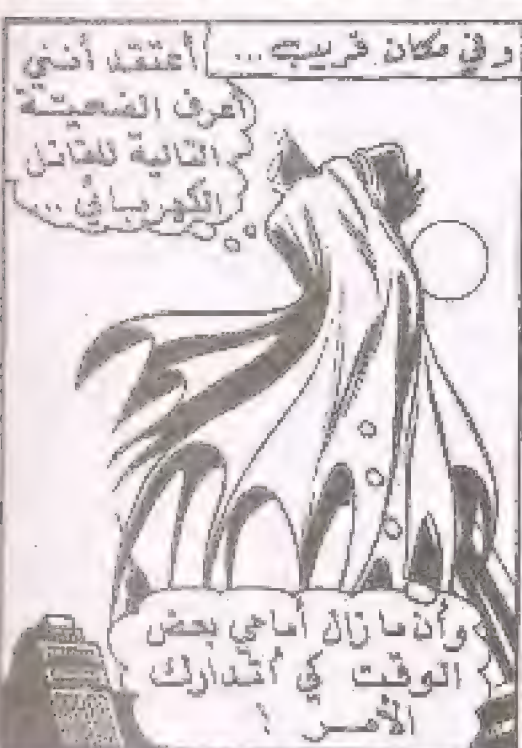 و في مكان قريب ...
أعتقد أنني
أعرف الضحية
الثانية للقاتل
الكهربائي ...
وأن ما زال أمامي بعض
الوقت كي أتدارك
الأمر !